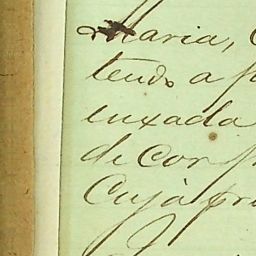 Maria,
tendo a
enxada
de cor
Cuja